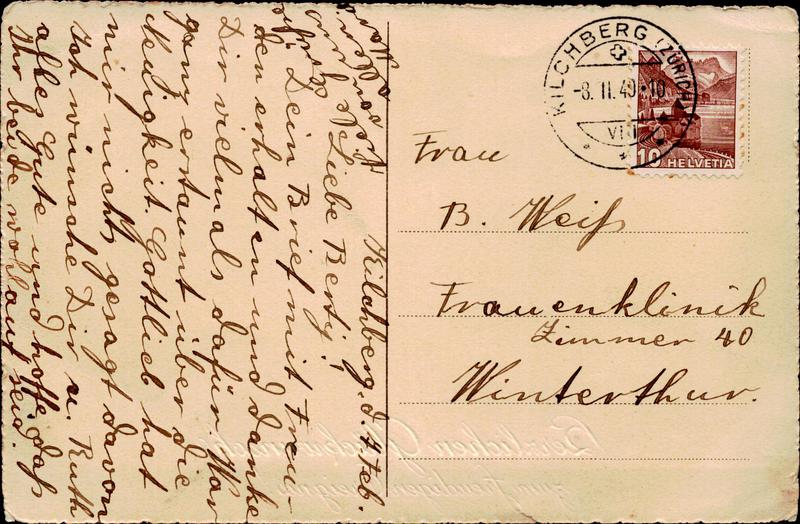 Kilchberg. d. 7 Feb.
Liebe Berty!
Dein Brief mit Freu-
den erhalten und danke
Dir vielmals dafür. War
ganz erstaunt über die
Neuigkeit. Gottlieb hat
mir nichts gesagt davon
Ich wünsche Dir u. Ruth
alles Gute und hoffe, daß
Ihr beide wohlauf seid.
KILCHBERG (ZÜRICH)
-8. II. 49-10
HELVETIA
10
Frau
B. Weiß
Frauenklinik
Zimmer 40
Winterthur.
Herzlichen Glückwunsch
zum freudigen Ereignis